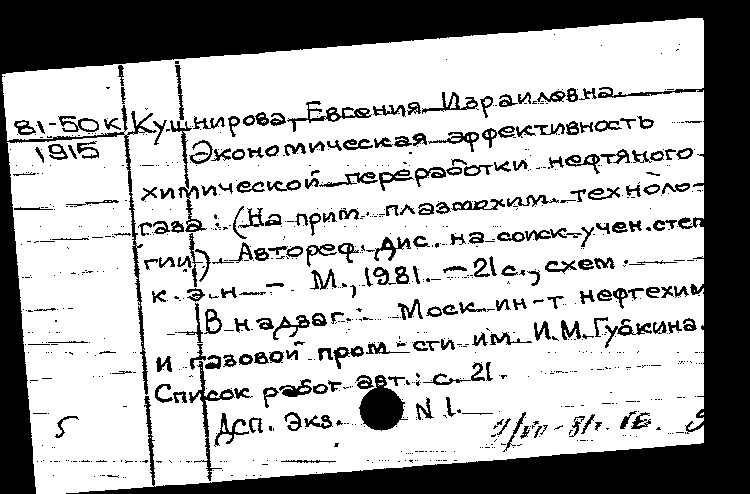 81-50К Кушнирова, Евгения Израиловна.
1915 Экономическая эффективность
химической переработки нефтяного
газа: (На прим. плазмохим. техноло-
гии). Автореф. дис. на соиск. учен. степ
к. э. н. - М., 1981. - 21 с., схем.
В надзаг.: Моск. ин-т нефтехим
и газовой пром-сти им. И.М. Губкина.
Список работ авт.: с. 21.
5 Дсп. Экз. N 1.